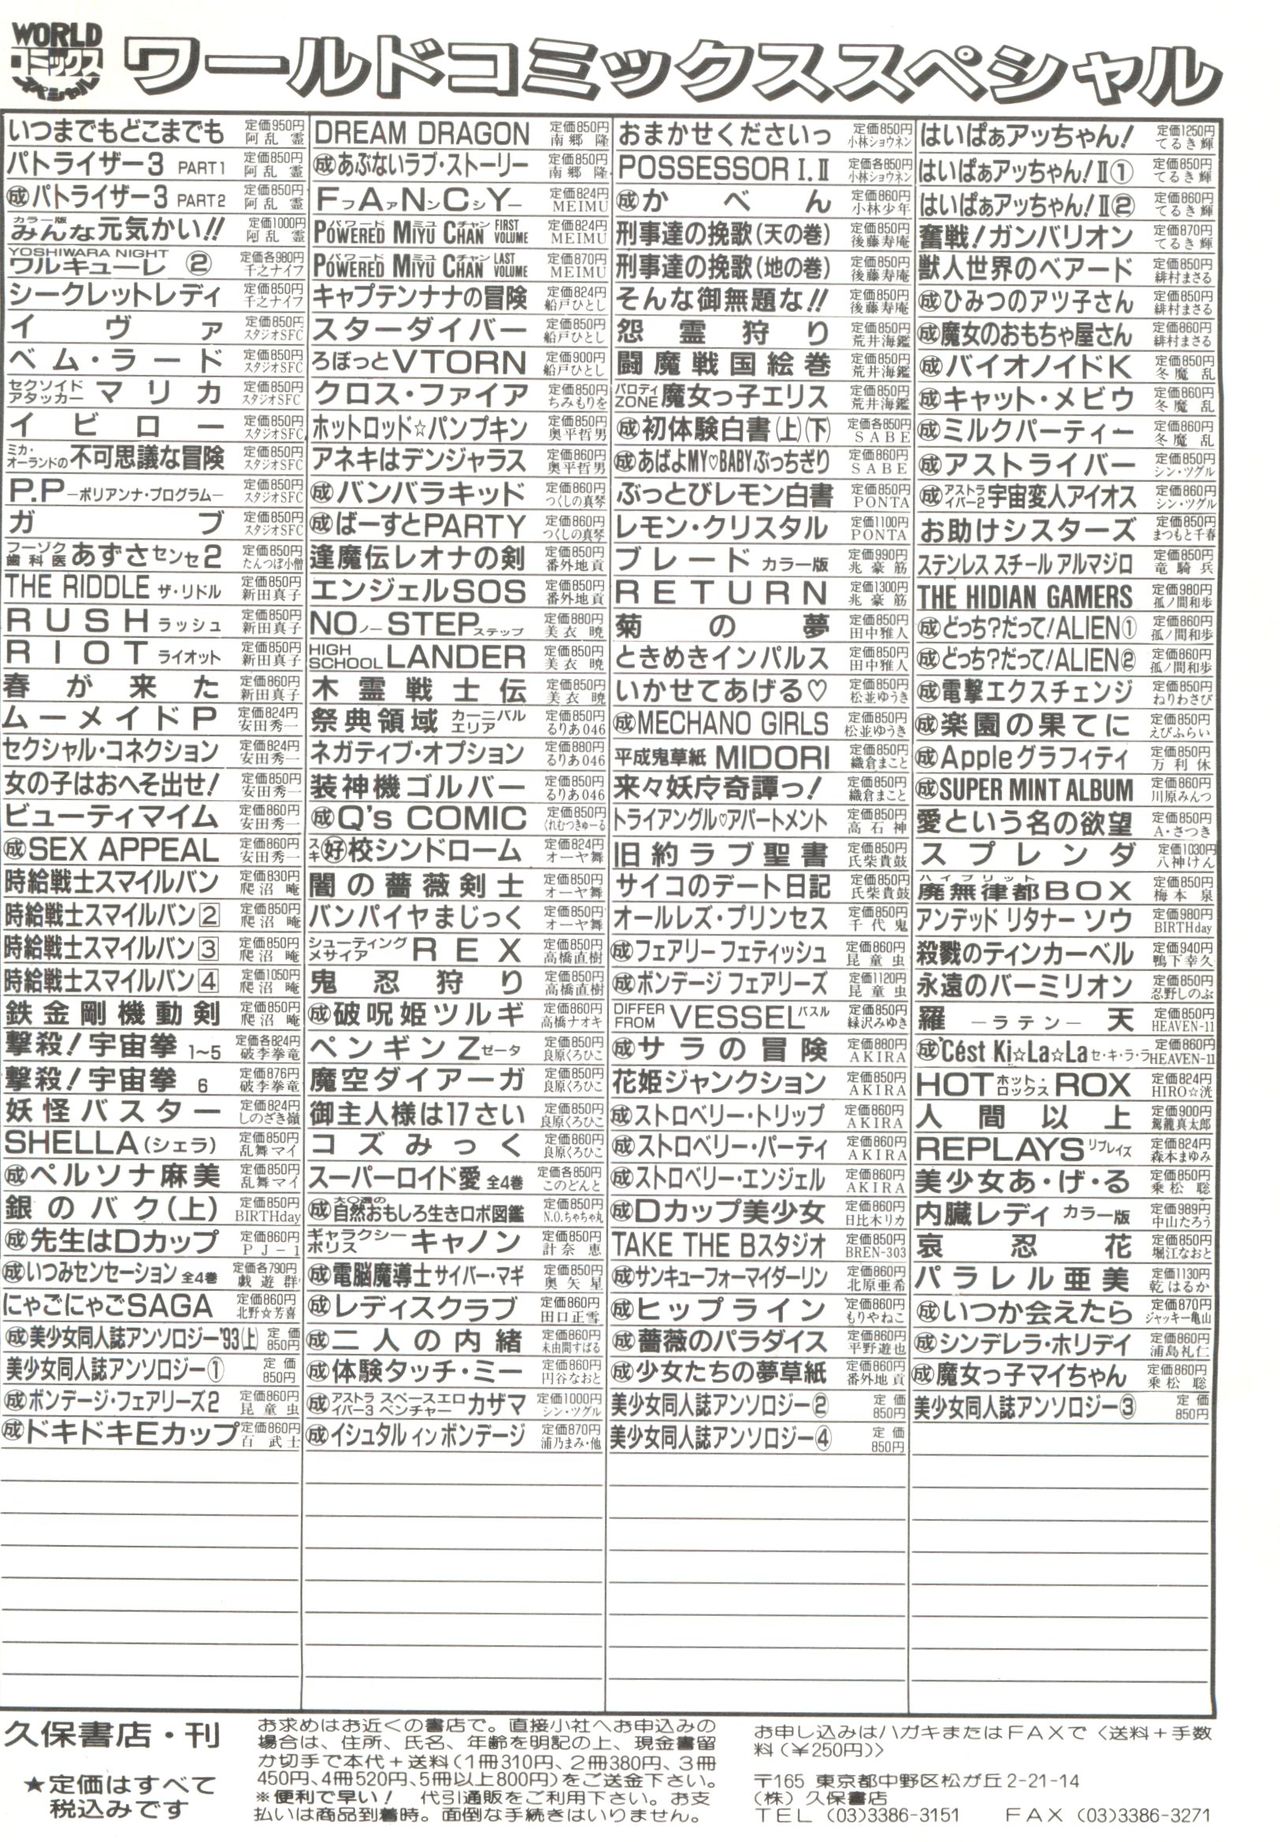 WORLD
コミックス
スペシャル
ワールドコミックススペシャル
いつまでもどこまでも 定価950円 阿乱霊
パトライザー3 PART1 定価850円 阿乱霊
成パトライザー3 PART2 定価850円 阿乱霊
カラー版 みんな元気かい!! 定価1000円 阿乱霊
YOSHIWARA NIGHT ワルキューレ ② 定価各980円 千之ナイフ
シークレットレディ 定価850円 千之ナイフ
イヴァ 定価850円 スタジオSFC
ベム・ラード 定価850円 スタジオSFC
セクソイドアタッカー マリカ 定価850円 スタジオSFC
イビロー 定価850円 スタジオSFC
ミカ・オーランドの不可思議な冒険 定価850円 スタジオSFC
P.P―ポリアンナ・プログラム― 定価850円 スタジオSFC
ガブ 定価850円 スタジオSFC
フーゾク歯科医 あずさセンセ2 定価850円 たんつぼ小僧
THE RIDDLE ザ・リドル 定価850円 新田真子
RUSH ラッシュ 定価850円 新田真子
RIOT ライオット 定価850円 新田真子
春が来た 定価860円 新田真子
ムーメイドP 定価824円 安田秀一
セクシャル・コネクション 定価824円 安田秀一
女の子はおへそ出せ! 定価850円 安田秀一
ビューティマイム 定価860円 安田秀一
成SEX APPEAL 定価860円 安田秀一
時給戦士スマイルバン 定価830円 爬沼庵
時給戦士スマイルバン2 定価850円 爬沼庵
時給戦士スマイルバン3 定価850円 爬沼庵
時給戦士スマイルバン4 定価1050円 爬沼庵
鉄金剛機動剣 定価850円 爬沼庵
撃殺!宇宙拳 1~5 定価各824円 破李拳竜
撃殺!宇宙拳 6 定価876円 破李拳竜
妖怪バスター 定価824円 しのざき嶺
SHELLA(シェラ) 定価850円 乱舞マイ
成ペルソナ麻美 定価850円 乱舞マイ
銀のバク(上) 定価850円 BIRTHday
成先生はDカップ 定価860円 PJ-1
成いつみセンセーション 全4巻 定価各790円 戯遊群
にゃごにゃごSAGA 定価860円 北野☆芳喜
成美少女同人誌アンソロジー'93(上) 定価850円
美少女同人誌アンソロジー① 定価850円
成ボンデージ・フェアリーズ2 定価860円 昆童虫
成ドキドキEカップ 定価860円 百武士
DREAM DRAGON 定価850円 南郷隆
成あぶないラブ・ストーリー 定価850円 南郷隆
FファAァNンCシYー 定価824円 MEIMU
POWERED パワード MIYU ミユ CHAN チャン FIRST VOLUME 定価824円 MEIMU
POWERED パワード MIYU ミユ CHAN チャン LAST VOLUME 定価870円 MEIMU
キャプテンナナの冒険 定価824円 船戸ひとし
スターダイバー 定価850円 船戸ひとし
ろぼっとVTORN 定価900円 船戸ひとし
クロス・ファイア 定価850円 ちみもりを
ホットロッド☆パンプキン 定価850円 奥平哲男
アネキはデンジャラス 定価860円 奥平哲男
成バンバラキッド 定価860円 つくしの真琴
成ばーすとPARTY 定価860円 つくしの真琴
逢魔伝レオナの剣 定価850円 番外地貢
エンジェルSOS 定価850円 番外地貢
NOノーSTEPステップ 定価880円 美衣暁
HIGH SCHOOL LANDER 定価850円 美衣暁
木霊戦士伝 定価850円 美衣暁
祭典領域 カーニバルエリア 定価880円 るりあ046
ネガティブ・オプション 定価880円 るりあ046
装神機ゴルバー 定価850円 るりあ046
成Q's COMIC 定価850円 くれむつきゅーる
スキ好校シンドローム 定価824円 オーヤ舞
闇の薔薇剣士 定価850円 オーヤ舞
バンパイヤまじっく 定価850円 オーヤ舞
シューティングメサイア REX 定価850円 高橋直樹
鬼忍狩り 定価850円 高橋直樹
成破呪姫ツルギ 定価860円 高橋ナオキ
ペンギンZゼータ 定価850円 良原くろひこ
魔空ダイアーガ 定価850円 良原くろひこ
御主人様は17さい 定価850円 良原くろひこ
コズみっく 定価860円 良原くろひこ
スーパーロイド愛 全4巻 定価各850円 このどんと
成大○選の自然おもしろ生きロボ図鑑 定価850円 N.O.ちゃちゃ丸
ギャラクシーポリス キャノン 定価850円 計奈恵
成電脳魔導士サイバー・マギ 定価850円 奥矢星
成レディスクラブ 定価860円 田口正雪
成二人の内緒 定価860円 未由間すばる
成体験タッチ・ミー 定価860円 円谷なおと
成アストライバー3 スペースエロベンチャー カザマ 定価1000円 シン・ツグル
成イシュタル イン ボンデージ 定価870円 浦乃まみ・他
おまかせくださいっ 定価850円 小林ショウネン
POSSESSOR I.II 定価各850円 小林ショウネン
成かべん 定価860円 小林少年
刑事達の挽歌(天の巻) 定価850円 後藤寿庵
刑事達の挽歌(地の巻) 定価850円 後藤寿庵
そんな御無題な!! 定価850円 後藤寿庵
怨霊狩り 定価850円 荒井海鑑
闘魔戦国絵巻 定価850円 荒井海鑑
パロディZONE 魔女っ子エリス 定価850円 荒井海鑑
成初体験白書(上)(下) 定価各850円 SABE
成あばよMY♡BABYぶっちぎり 定価860円 SABE
ぶっとびレモン白書 定価850円 PONTA
レモン・クリスタル 定価1100円 PONTA
ブレード カラー版 定価990円 兆豪筋
RETURN 定価1300円 兆豪筋
菊の夢 定価850円 田中雅人
ときめきインパルス 定価850円 田中雅人
いかせてあげる♡ 定価850円 松並ゆうき
成MECHANO GIRLS 定価850円 松並ゆうき
平成鬼草紙 MIDORI 定価850円 織倉まこと
来々妖戻奇譚っ! 定価860円 織倉まこと
トライアングル♡アパートメント 定価850円 高石神
旧約ラブ聖書 定価850円 氏柴貴鼓
サイコのデート日記 定価850円 氏柴貴鼓
オールレズ・プリンセス 定価850円 千代鬼
成フェアリーフェティッシュ 定価860円 昆童虫
成ボンデージ フェアリーズ 定価1120円 昆童虫
DIFFER FROM VESSELバスル 定価850円 緑沢みゆき
成サラの冒険 定価880円 AKIRA
花姫ジャンクション 定価850円 AKIRA
成ストロベリー・トリップ 定価860円 AKIRA
成ストロベリー・パーティ 定価860円 AKIRA
成ストロベリー・エンジェル 定価860円 AKIRA
成Dカップ美少女 定価850円 日比木リカ
TAKE THE Bスタジオ 定価850円 BREN-303
成サンキューフォーマイダーリン 定価860円 北原亜希
成ヒップライン 定価860円 もりやねこ
成薔薇のパラダイス 定価860円 平野遊也
成少女たちの夢草紙 定価860円 番外地貢
美少女同人誌アンソロジー② 定価850円
美少女同人誌アンソロジー④ 定価850円
はいぱぁアッちゃん! 定価1250円 てるき輝
はいぱぁアッちゃん!II① 定価850円 てるき輝
はいぱぁアッちゃん!II② 定価860円 てるき輝
奮戦!ガンバリオン 定価870円 てるき輝
獣人世界のベアード 定価850円 緋村まさる
成ひみつのアツ子さん 定価850円 緋村まさる
成魔女のおもちゃ屋さん 定価850円 緋村まさる
成バイオノイドK 定価850円 冬魔乱
成キャット・メビウ 定価860円 冬魔乱
成ミルクパーティー 定価860円 冬魔乱
成アストライバー 定価850円 シン・ツグル
成アストライバー2宇宙変人アイオス 定価860円 シン・ツグル
お助けシスターズ 定価850円 まつもと千春
ステンレス スチール アルマジロ 定価850円 竜騎兵
THE HIDIAN GAMERS 定価980円 孤ノ間和歩
成どっち?だって!ALIEN① 定価860円 孤ノ間和歩
成どっち?だって!ALIEN② 定価860円 孤ノ間和歩
成電撃エクスチェンジ 定価850円 ねりわさび
成楽園の果てに 定価850円 えびふらい
成Appleグラフィティ 定価850円 万利休
成SUPER MINT ALBUM 定価860円 川原みんつ
愛という名の欲望 定価850円 A・さつき
スプレンダ 定価1030円 八神けん
ハイブリット 廃無律都BOX 定価850円 梅本泉
アンデッド リタナー ソウ 定価980円 BIRTHday
殺戮のティンカーベル 定価940円 鴨下幸久
永遠のバーミリオン 定価850円 忍野しのぶ
羅―ラテン―天 定価850円 HEAVEN-11
成'Cést Ki☆La☆La セ・キ・ラ・ラ 定価860円 HEAVEN-11
HOTホット・ロックスROX 定価824円 HIRO☆洸
人間以上 定価900円 駕籠真太郎
REPLAYSリプレイズ 定価824円 森本まゆみ
美少女あ・げ・る 定価850円 乗松聡
内臓レディ カラー版 定価989円 中山たろう
哀忍花 定価850円 堀江なおと
パラレル亜美 定価1130円 乾はるか
成いつか会えたら 定価870円 ジャッキー亀山
成シンデレラ・ホリデイ 定価860円 浦島礼仁
成魔女っ子マイちゃん 定価860円 乗松聡
美少女同人誌アンソロジー③ 定価850円
久保書店・刊
★定価はすべて
税込みです
お求めはお近くの書店で。直接小社へお申込みの
場合は、住所、氏名、年齢を明記の上、現金書留
か切手で本代+送料(1冊310円、2冊380円、3冊
450円、4冊520円、5冊以上800円)をご送金下さい。
※便利で早い! 代引通販をご利用下さい。お支
払いは商品到着時。面倒な手続きはいりません。
お申し込みはハガキまたはFAXで〈送料+手数
料(¥250円)〉
〒165 東京都中野区松が丘2-21-14
(株)久保書店
TEL (03)3386-3151 FAX (03)3386-3271